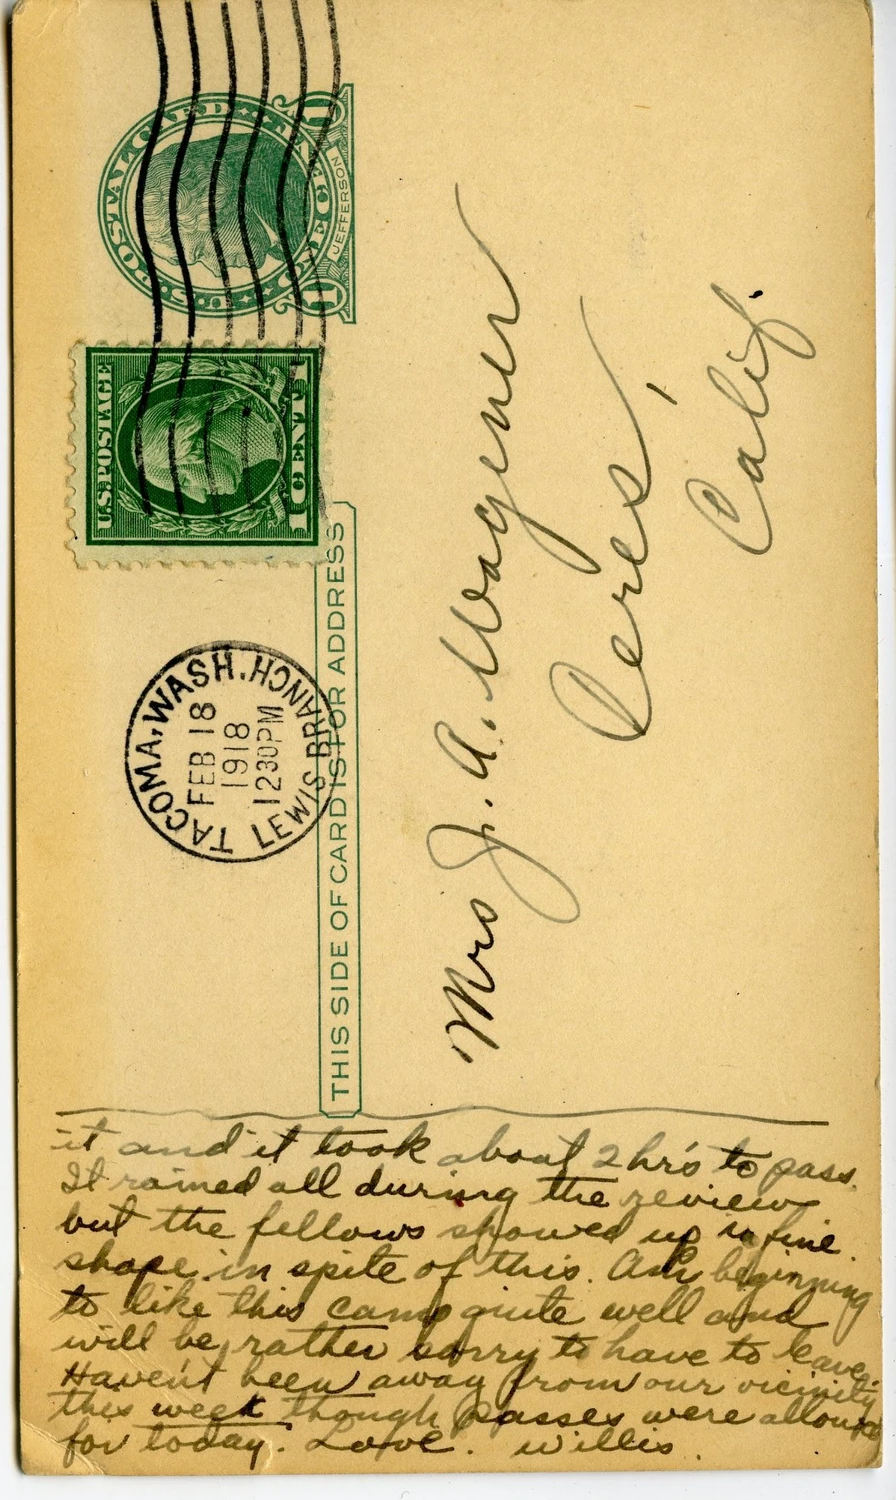 U.S. POSTAL CARD
ONE CENT
1 1
JEFFERSON
U.S. POSTAGE
1 CENT 1
TACOMA, WASH.
FEB 18
1918
1230PM
LEWIS BRANCH
THIS SIDE OF CARD IS FOR ADDRESS
Mrs J. A. Wagener
Ceres,
Calif
it and it took about 2 hr's to pass.
It rained all during the review
but the fellows showed up in fine
shape in spite of this. Am beginning
to like this camp quite well and
will be rather sorry to have to leave.
Haven't been away from our vicinity
this week though passes were allowed
for today. Love. Willis.